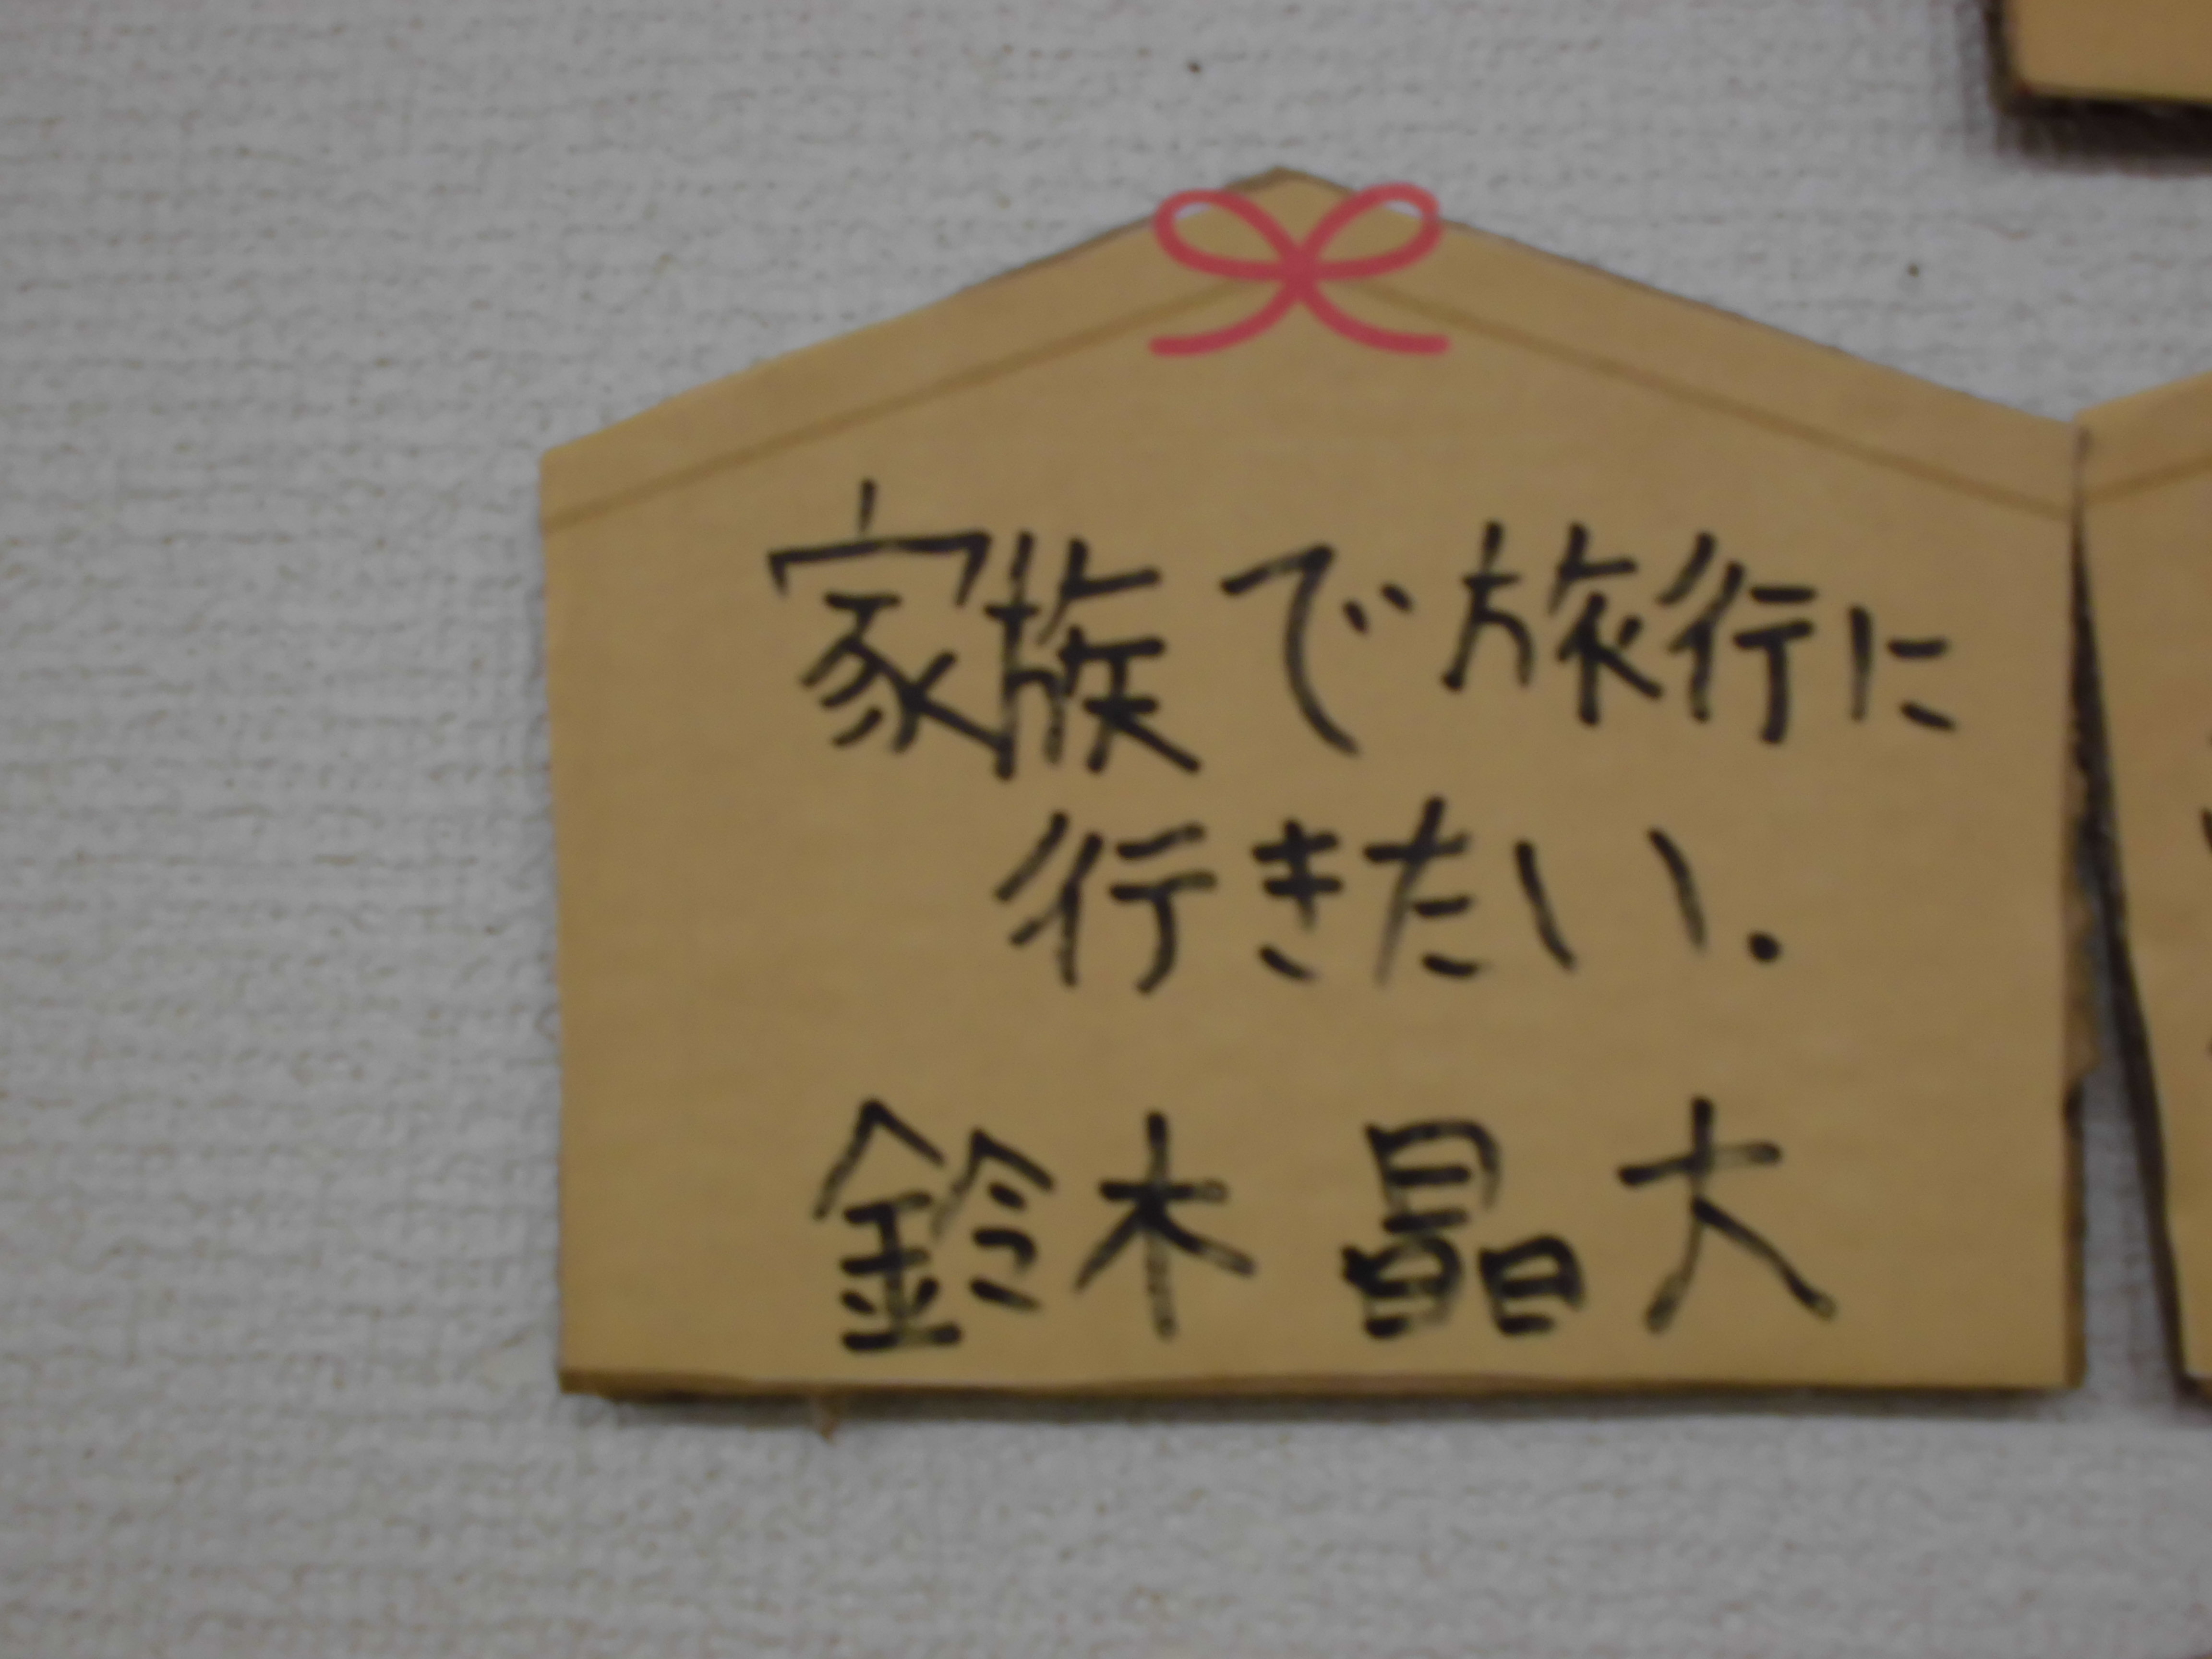 家族で旅行に
行きたい.
鈴木 晶大